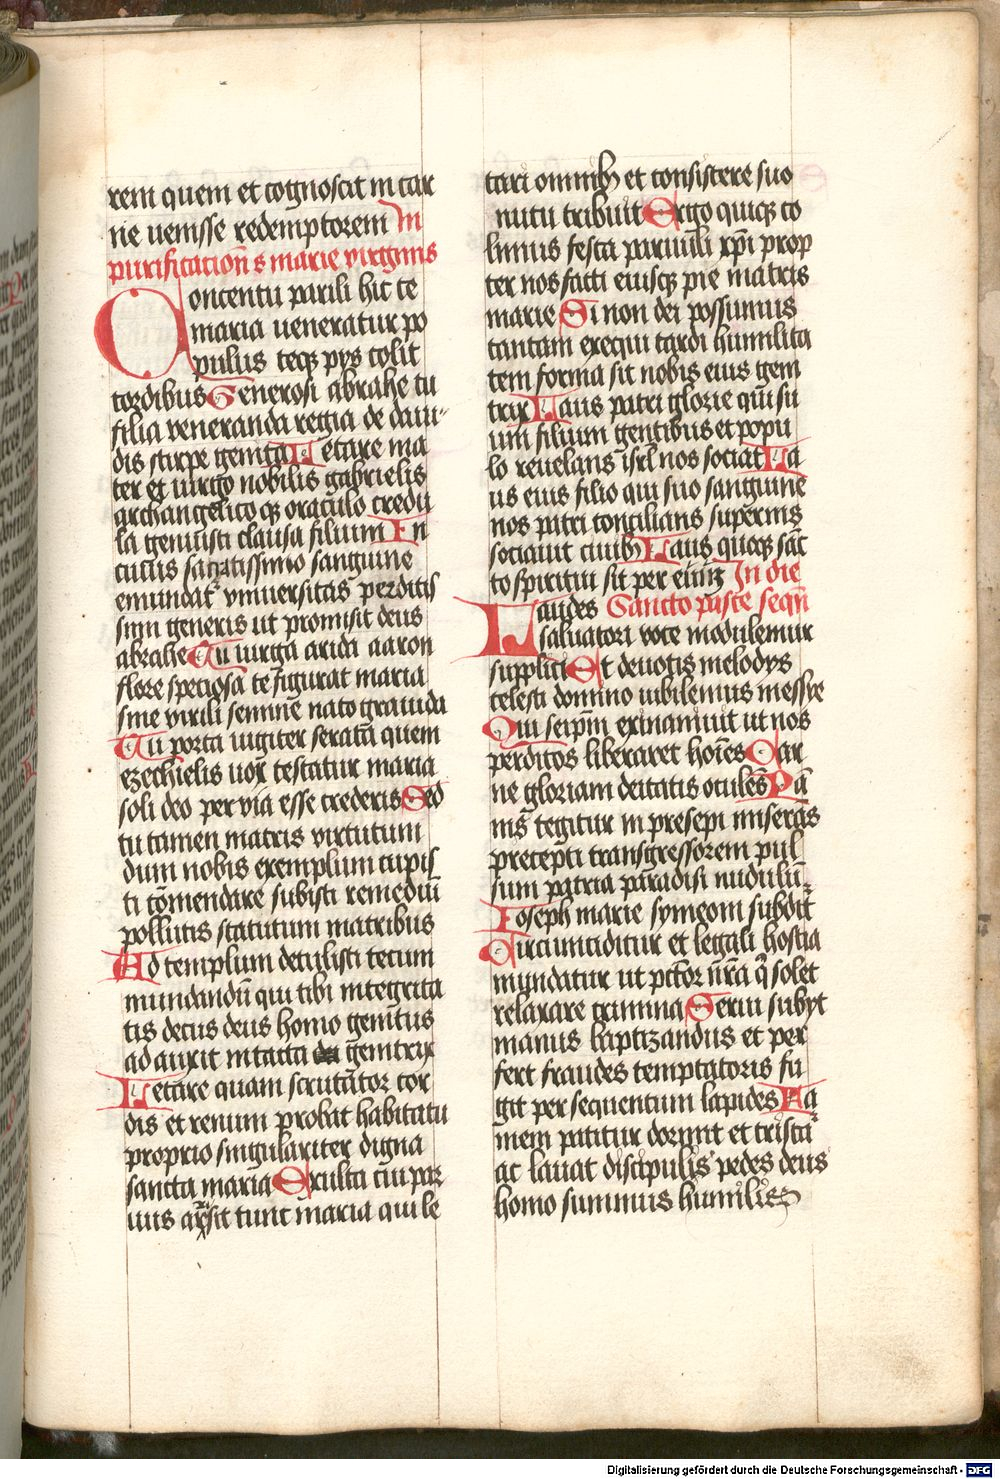 rem quem et cognoscit in car
ne uenisse redemptorem In
purificacion̄ s marie virginis
Concentu parili hic te
maria ueneratur po
pulus teqꝫ pys colit
cordibus Generosi abrahe tu
filia veneranda regia de daui-
dis stirpe genita Letare ma
ter et uirgo nobilis gabrielis
archangelico qꝫ oraculo credu
la genuisti clausa filium In
cuius sacratissimo sanguine
emundat᷑ vniuersitas perditis
simi generis ut promisit deus
abrahe Tu uirga arida aaron
flore speciosa te figurat maria
sine virili semine nato grauida
Tu porta iugiter serata quem
ezechielis uox testatur maria
soli deo per via esse crederis Sed
tu tamen matris virtutum
dum nobis exemplum cupis
ti cōmendare subisti remediū
pollutis statutum matribus
Ad templum detulisti tecum
mundandū qui tibi integrita
tis decus deus homo genitus
ad auxit intacta genitrix
Letare quam scrutator cor
dis et renum probat habitatu
proprio singulariter digna
sancta maria Exulta cui par
uus arsit tunc maria qui le
tari omnibꝫ et consistere suo
nutu tribuit Ergo quiqꝫ co
limus festa paruuli xp̄i prop
ter nos facti eiusqꝫ pie matris
marie Si non dei possumus
tantam exequi tardi humilita
tem forma sit nobis eius geni
trix Laus patri glorie qui su
um filium gentibus et popu
lo reuelans isrl nos sociat La
us eius filio qui suo sanguine
nos patri concilians supernis
sociauit ciuibꝫ Laus quoqꝫ sāc
to spiritui sit per euū In die
Laudes Sancto pasce seqn̄
saluatori voce modulemur
supplici Et deuotis melodys
celesti domino iubilemus messye
Qui seip̄m exinaniuit ut nos
perditos liberaret hoīes Car
ne gloriam deitatis occulēs Pā
nis tegitur in presepi miserās
precepti transgressorem pul
sum patria paradisi nudulū
Joseph marie symeoni subdit᷑
Circumciditur et legali hostia
mundatur ut pctor nr̄a q̄ solet
relaxare crimina Serui subyt
manus baptizandus et per
fert fraudes temptatoris fu
git persequentum lapides Fa
mem patitur dormit et trista᷑
ac lauat discipulis pedes deus
homo summus humilis
Digitalisierung gefördert durch die Deutsche Forschungsgemeinschaft - DFG